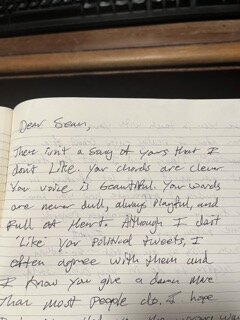 Dear Sean,
There isn't a song of yours that I
don't like. Your chords are clever
Your voice is beautiful. Your words
are never dull, always playful, and
full of Heart. Although I don't
'Like' your political tweets, I
often agree with them and
I know you give a damn more
than most people do. I hope